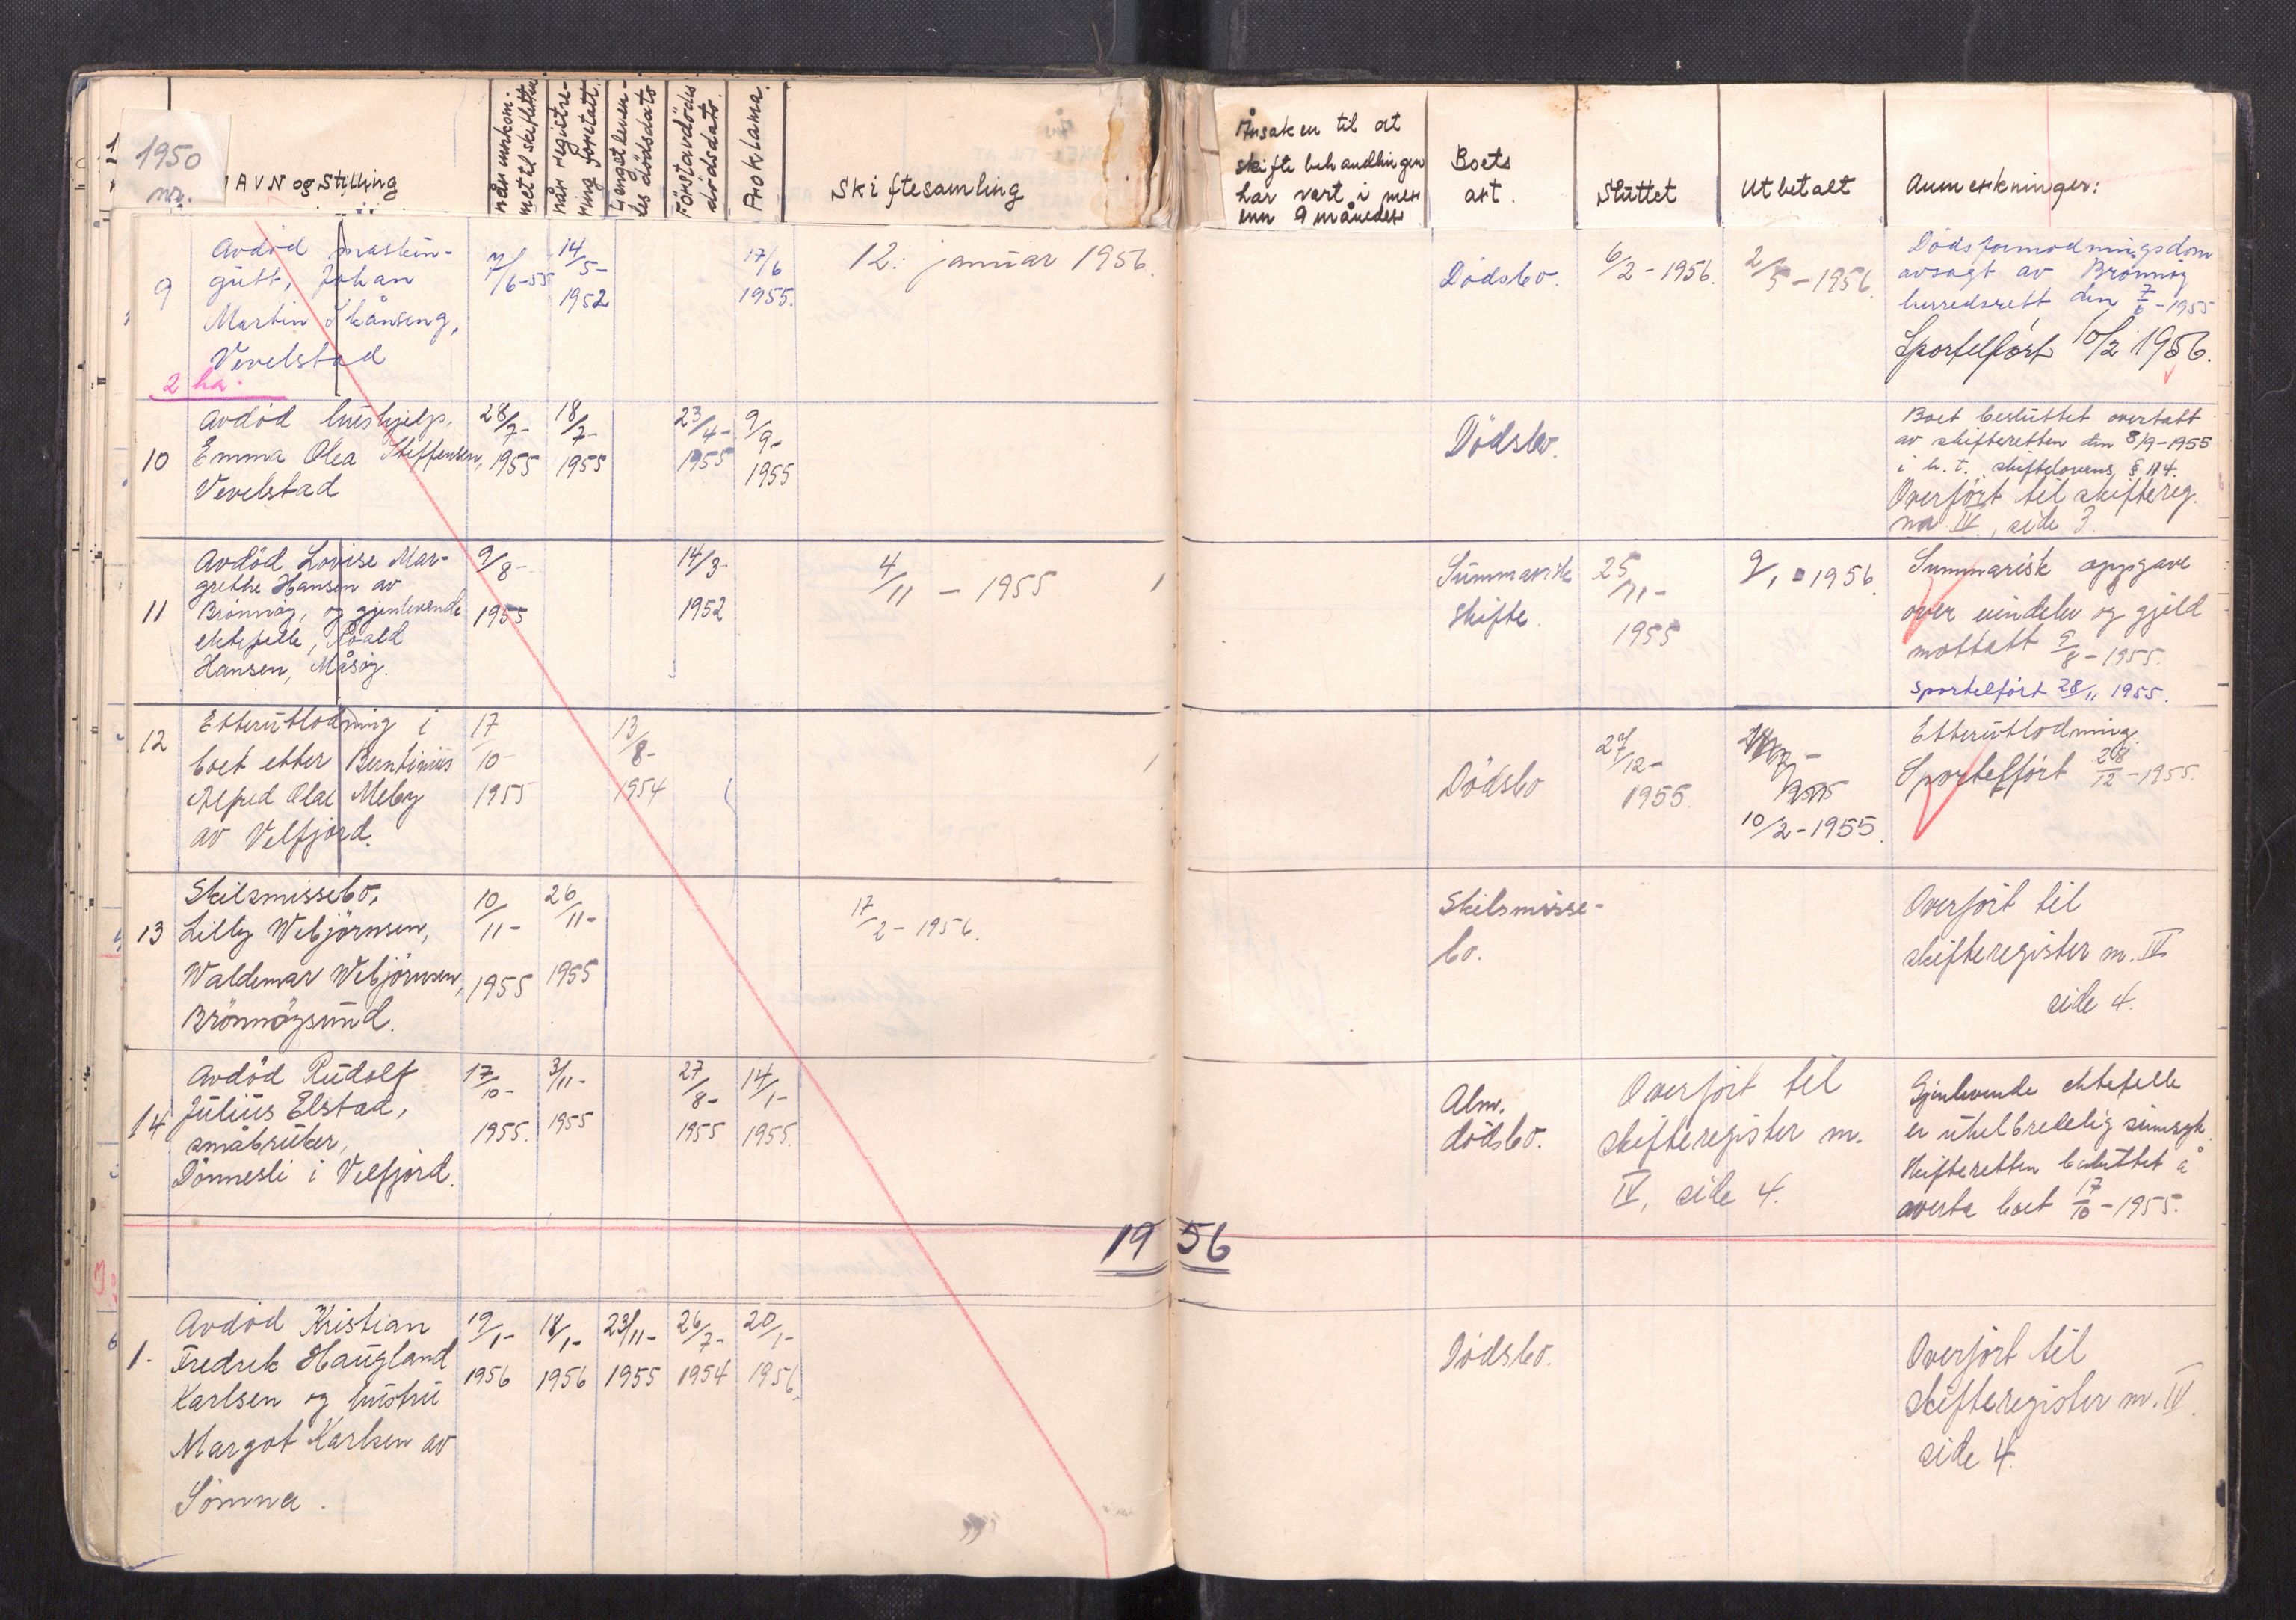 1950
nr.
NAVN og Stilling
når innkom-
met til skifteretten
når registre-
ring foretatt.
Lengstleven-
des dödsdato
Förstavdödes
dödsdato.
Proklama.
Skiftesamling
Årsaken til at
skiftebehandlingen
har vart i mer
enn 9 måneder
Boets
art.
Sluttet
Utbetalt
Anmerkninger:
9
Avdöd maskin-
gutt, Johan
Martin Skånseng,
Vevelstad
2 ha.
7/6-55
14/5-
1952
17/6
1955.
12. januar 1956.
Dödsbo.
6/2-1956.
2/5-1956.
Dödsformodningsdom
avsagt av Brönnöy
herredsrett den 7/6-1955
Sportelfört 10/2 1956.
10
Avdöd hushjelp.
Emma Olea Steffensen,
Vevelstad
28/7-
1955
18/7-
1955
23/4-
1955
9/9-
1955
Dödsbo.
Boet besluttet overtatt
av skifteretten den 8/9-1955
i h.t. skiftelovens § 114.
Overfört til skiftereg.
nr IV, side 3.
11
Avdöd Lovise Mar-
grethe Hansen av
Brönnöy, og gjenlevende
ektefelle, Roald
Hansen, Måsöy.
9/8-
1955
14/3-
1952
4/11 - 1955
Summarisk
skifte.
25/11-
1955
9/1-1956.
Summarisk oppgave
over eiendeler og gjeld
mottatt 9/8-1955.
Sportelfört 28/11 1955.
12
Etterutlodning i
boet etter Berntinius
Alfred Olai Meby
av Velfjord.
17/10-
1955
13/8-
1954
Dödsbo
27/12-
1955.
10/2-1955.
Etterutlodning.
Sportelfört 28/12-1955.
13
Skilsmissebo,
Lilly Webjörnsen,
Waldemar Webjörnsen,
Brönnöysund.
10/11-
1955
26/11-
1955
17/2-1956.
Skilsmisse-
bo.
Overfört til
skifteregister nr. IV
side 4.
14
Avdöd Rudolf
Julius Elstad,
småbruker,
Dönnesli i Velfjord.
17/10-
1955.
3/11-
1955
27/8-
1955
14/1-
1955.
Alm.
dödsbo.
Overfört til
skifteregister nr.
IV, side 4.
Gjenlevende ektefelle
er uhelbredelig sinnsyk.
Skifteretten besluttet å
overta boet 17/10-1955.
1956
1.
Avdöd Kristian
Fredrik Haugland
Karlsen og hustru
Margot Karlsen av
Sömna.
19/1-
1956
18/1-
1956
23/11-
1955
26/7-
1954
20/1-
1956.
Dödsbo.
Overfört til
skifteregister nr. IV.
side 4.